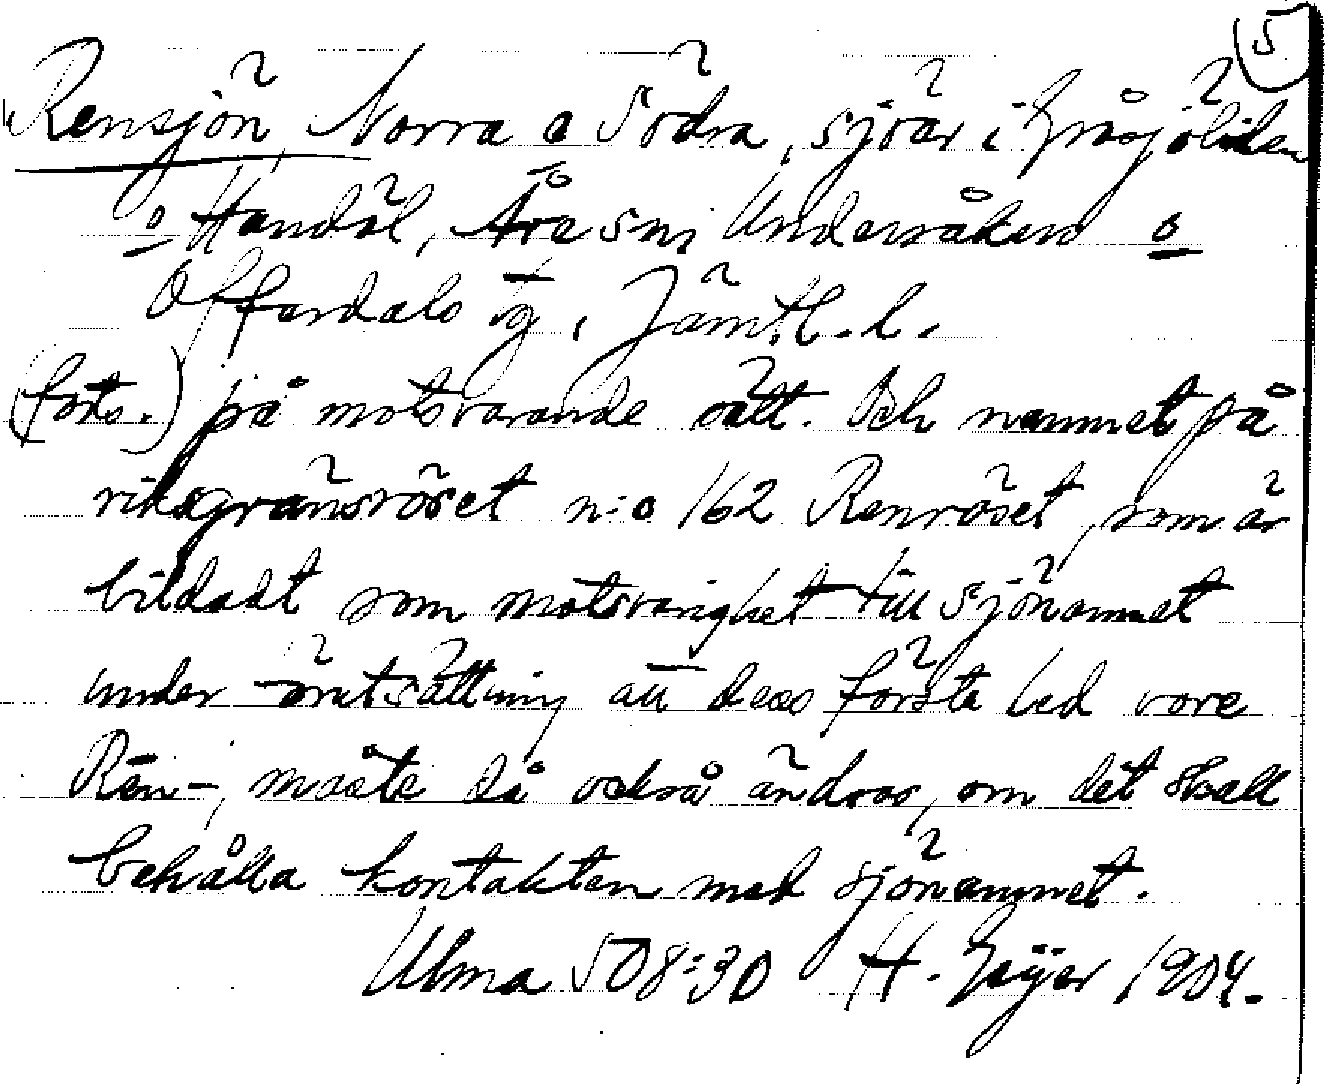 5
Rensjön, Norra o Södra, sjöar i Gråsjöliden
o Handöl, Åre sn i Undersåkers o
Offerdals tg, Jämtl. l.
(forts.) på motsvarande sätt. Och namnet på
riksgränsröset n:o 162 Renröset, som är
bildadt som motsvarighet till sjönamnet
under omtsättning att dess första led vore
Rēn-, måste då också ändras, om det skall
behålla kontakten med sjönamnet.
Ulma 508:30 H. Geijer 1904.